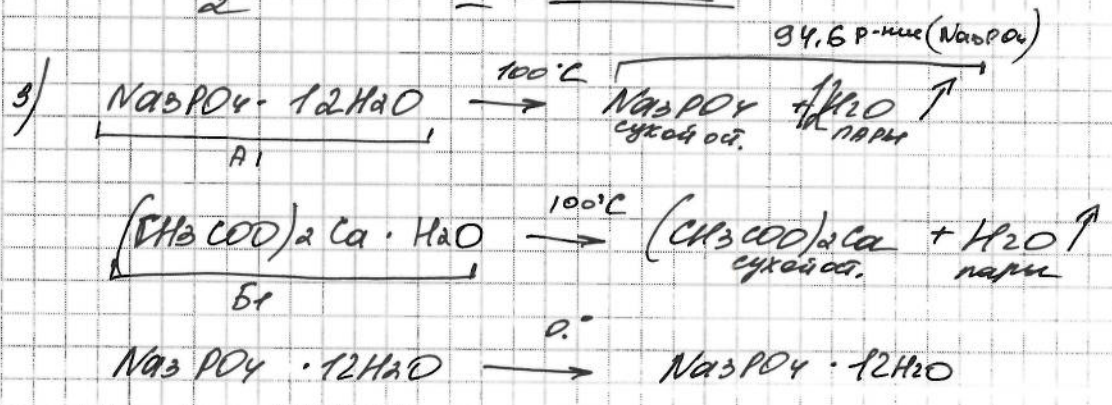 2
94,6 р-ние (Na3PO4)
3) Na3PO4 · 12H2O 100°C → Na3PO4 + 12H2O ↑
сухой ост. пары
А1
(CH3COO)2Ca · H2O 100°C → (CH3COO)2Ca + H2O ↑
сухой ост. пары
Б1
Na3PO4 · 12H2O 0.° → Na3PO4 · 12H2O